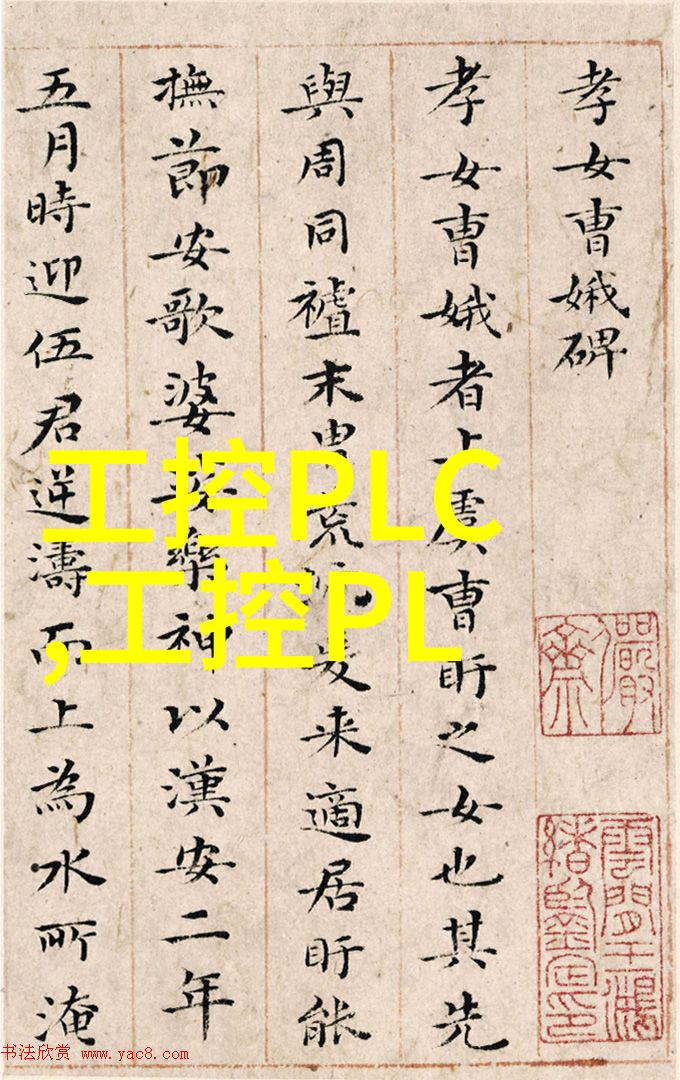 孝女曹娥碑
孝女曹娥者上虞曹盱之女也其先
與周同末胄荒爰来適居盱能
撫節安歌婆娑樂神以漢安二年
五月時迎伍君逆濤而上為水所淹
工控PLC
,工控PL
儼齋
雲間王鴻緒鑒定印
书法欣赏 www.yac8.com